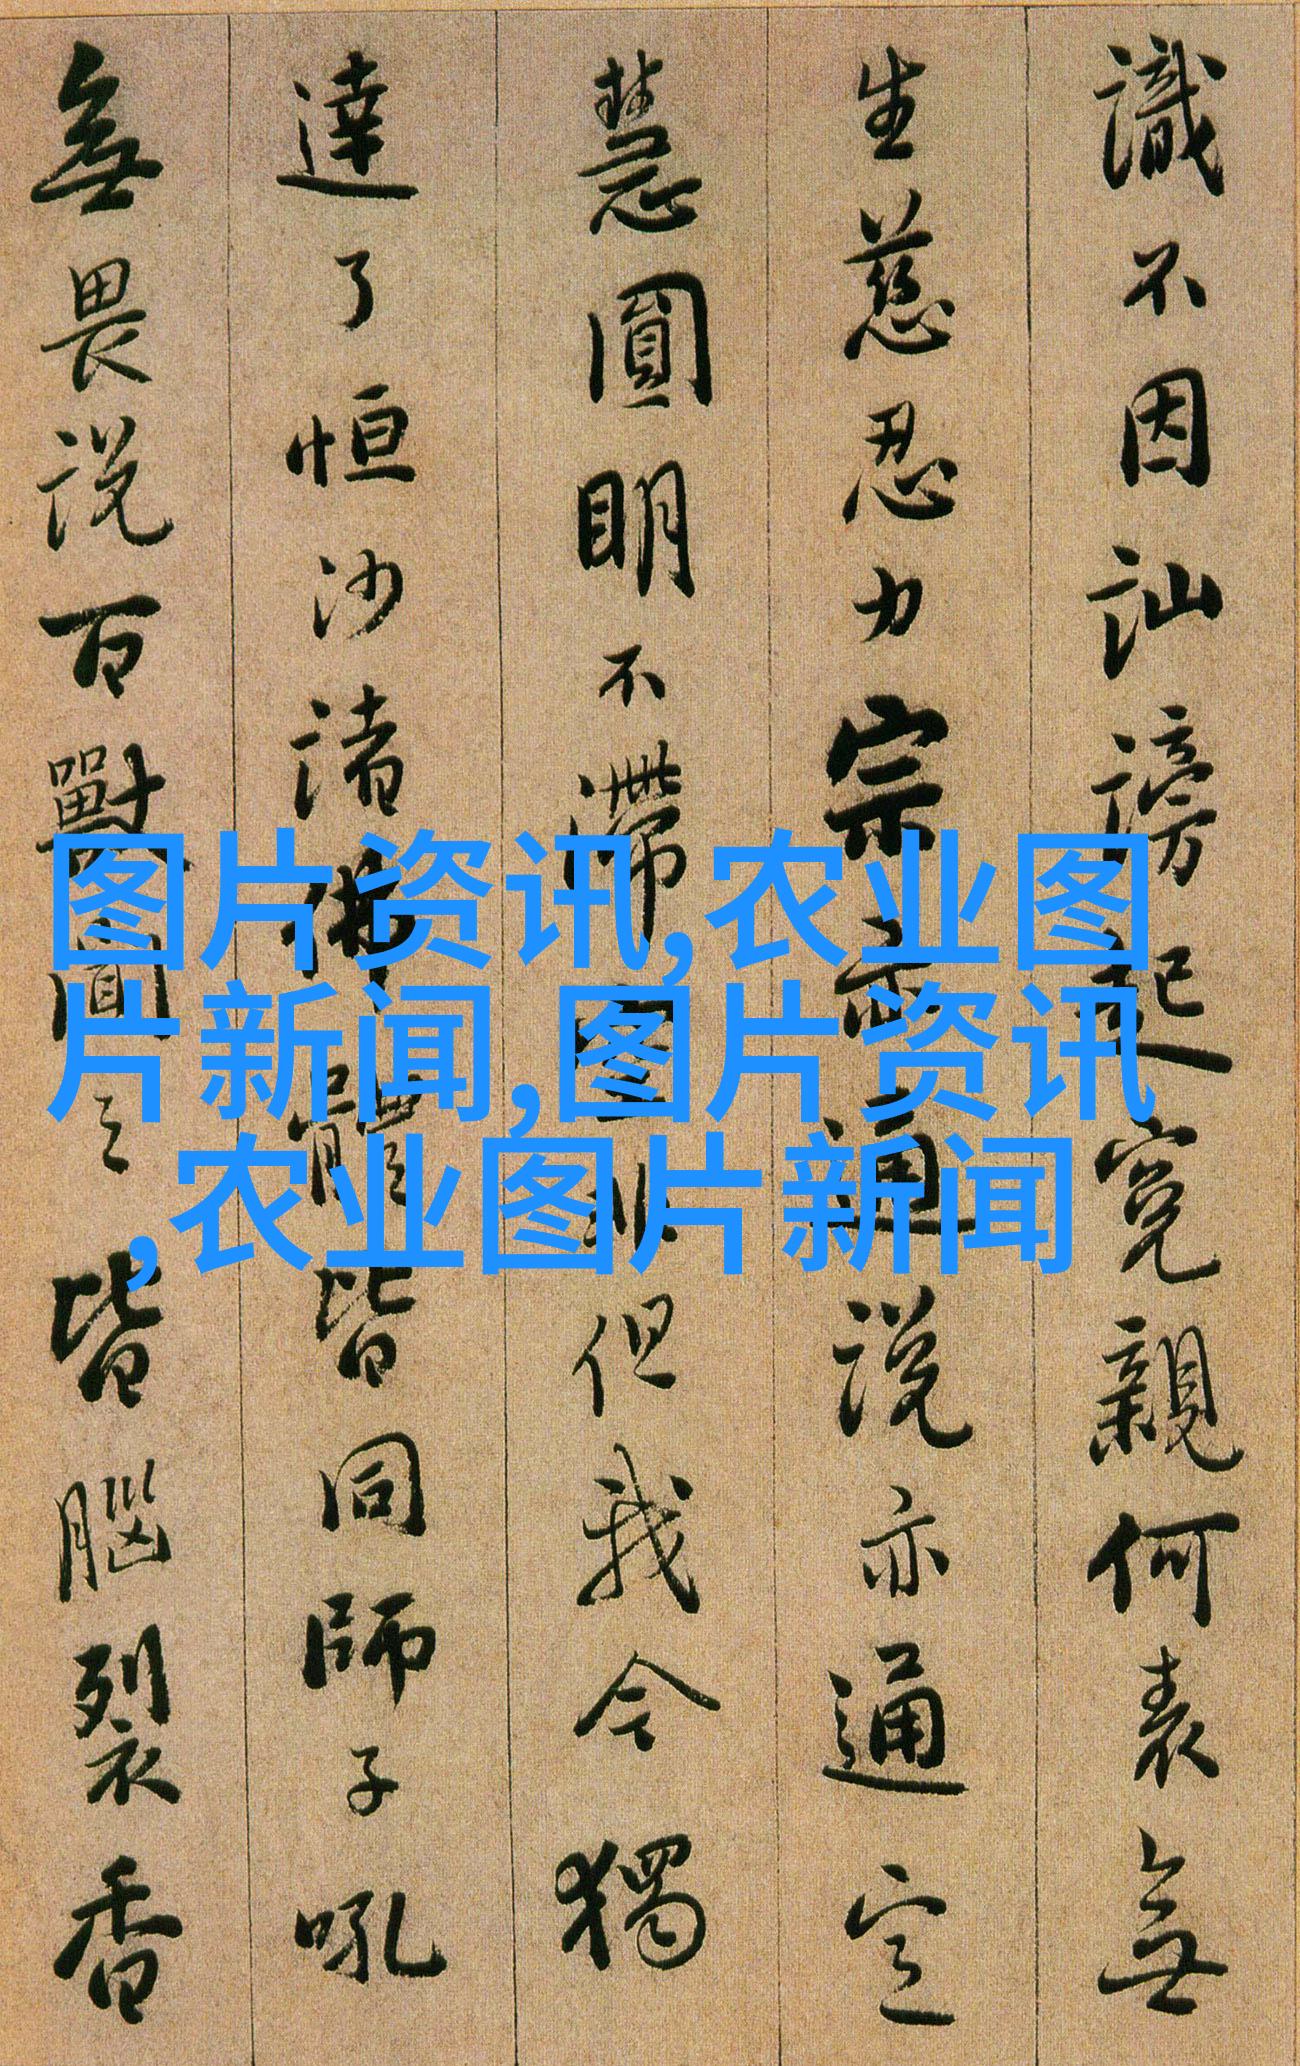 識不因訕謗起寃親何表無
生慈忍力宗亦通説亦通定
慧圓明不滯空非但我今獨
達了恒沙諸佛體皆同師子吼
無畏説百獸聞之皆腦裂香
图片资讯,农业图
片新闻,图片资讯
,农业图片新闻